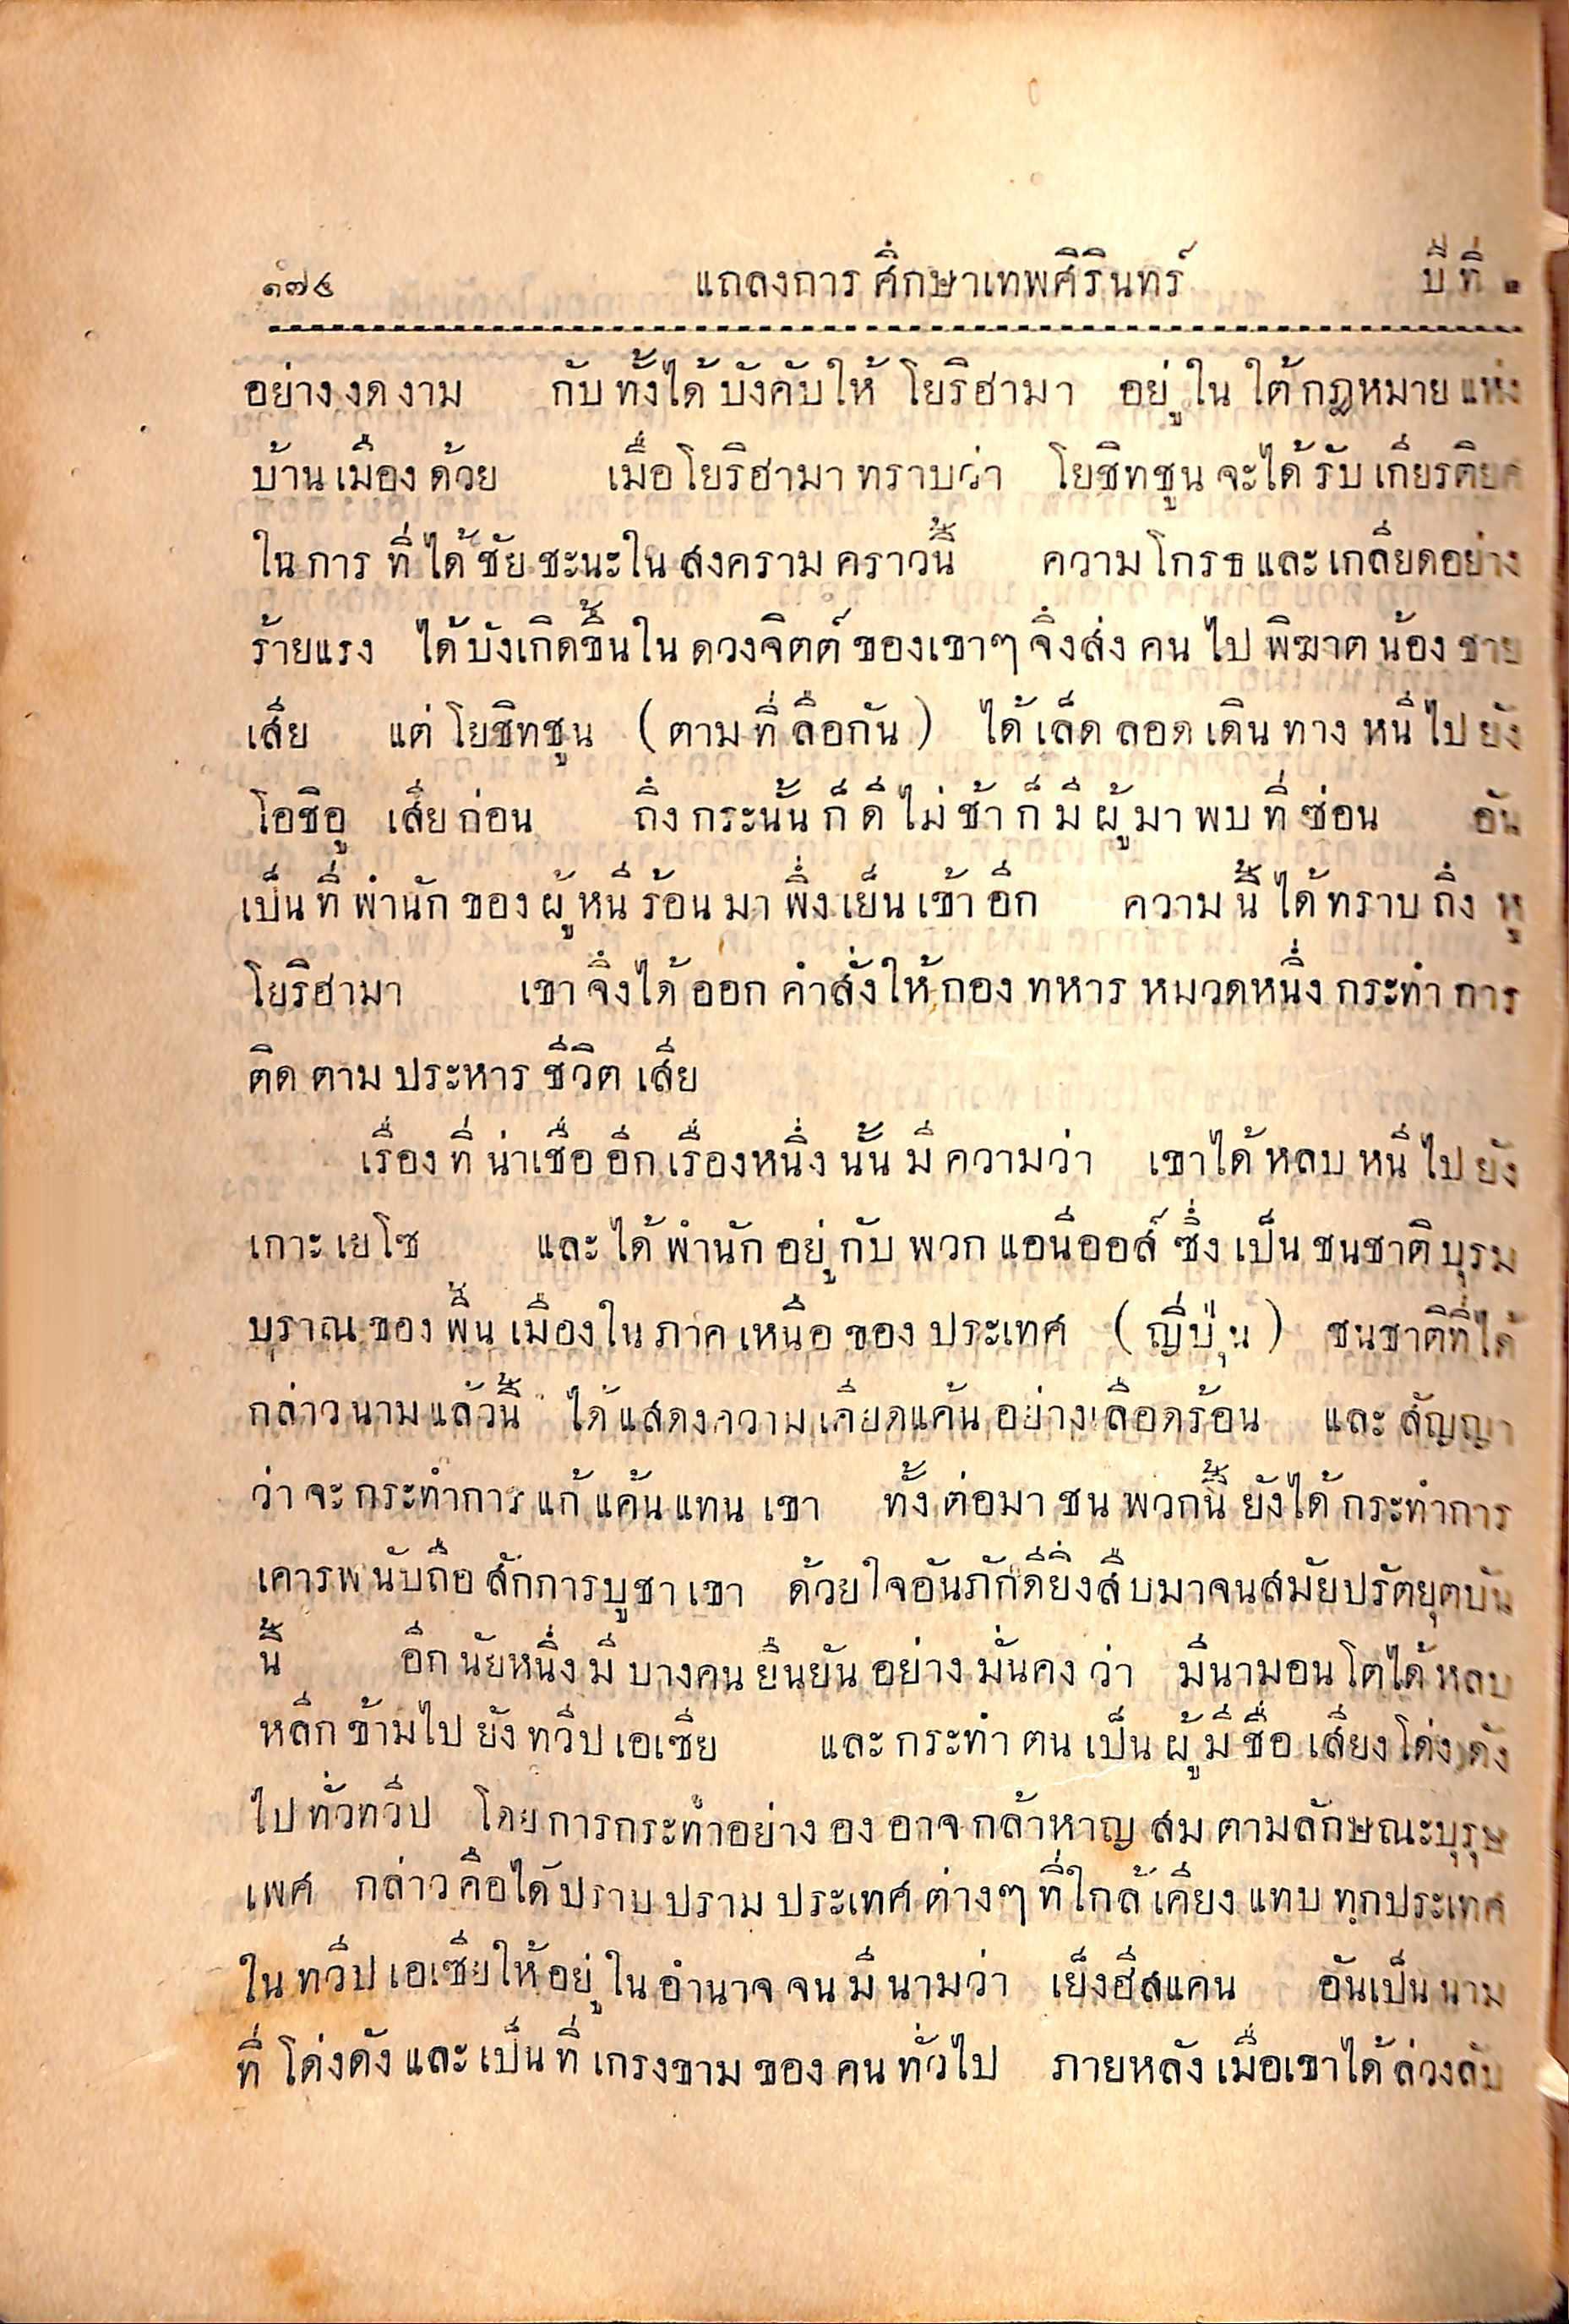 ๑๗๔ แถลงการศึกษาเทพศิรินทร์ ปีที่ ๑
อย่างงดงาม กับทั้งได้บังคับให้ โยริฮามา อยู่ในใต้กฎหมายแห่ง
บ้านเมืองด้วย เมื่อโยริฮามาทราบว่า โยชิทชูนจะได้รับเกียรติยศ
ในการที่ได้ชัยชะนะในสงครามคราวนี้ ความโกรธและเกลียดอย่าง
ร้ายแรง ได้บังเกิดขึ้นในดวงจิตต์ของเขาๆ จึ่งส่งคนไปพิฆาตน้องชาย
เสีย แต่โยชิทชูน (ตามที่ลือกัน) ได้เล็ดลอดเดินทางหนีไปยัง
โอชิอู เสียก่อน ถึงกระนั้นก็ดีไม่ช้าก็มีผู้มาพบที่ซ่อน อัน
เป็นที่พำนักของผู้หนีร้อนมาพึ่งเย็นเข้าอีก ความนี้ได้ทราบถึงหู
โยริฮามา เขาจึงได้ออกคำสั่งให้กองทหารหมวดหนึ่งกระทำการ
ติดตามประหารชีวิตเสีย
เรื่องที่น่าเชื่ออีกเรื่องหนึ่งนั้นมีความว่า เขาได้หลบหนีไปยัง
เกาะเยโซ และได้พำนักอยู่กับพวกแอนีออส์ซึ่งเป็นชนชาติบุรม
บุราณของพื้นเมืองในภาคเหนือของประเทศ (ญี่ปุ่น) ชนชาติที่ได้
กล่าวนามแล้วนี้ ได้แสดงความเคียดแค้นอย่างเลือดร้อน และสัญญา
ว่าจะกระทำการแก้แค้นแทนเขา ทั้งต่อมาชนพวกนี้ยังได้กระทำการ
เคารพนับถือสักการบูชาเขา ด้วยใจอันภักดียิ่งสืบมาจนสมัยปรัตยุตบัน
นี้ อีกนัยหนึ่งมีบางคนยืนยันอย่างมั่นคงว่า มีนามอนโตได้หลบ
หลีกข้ามไปยังทวีปเอเซีย และกระทำตนเป็นผู้มีชื่อเสียงโด่งดัง
ไปทั่วทวีป โดยการกระทำอย่างองอาจกล้าหาญสมตามลักษณะบุรุษ
เพศ กล่าวคือได้ปราบปรามประเทศต่างๆที่ใกล้เคียงแทบทุกประเทศ
ในทวีปเอเซียให้อยู่ในอำนาจจนมีนามว่า เย็งฮีสแคน อันเป็นนาม
ที่โด่งดังและเป็นที่เกรงขามของคนทั่วไป ภายหลังเมื่อเขาได้ล่วงลับ